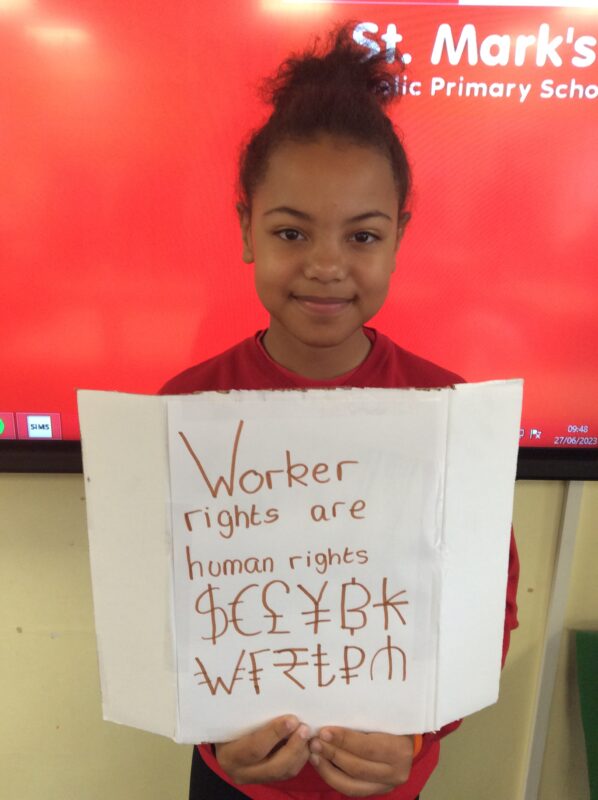 St. Mark's
olic Primary Scho
SIMS
09:48
27/06/2023
Worker
rights are
human rights
$€£¥฿₭
₩₣₹₺₽₼